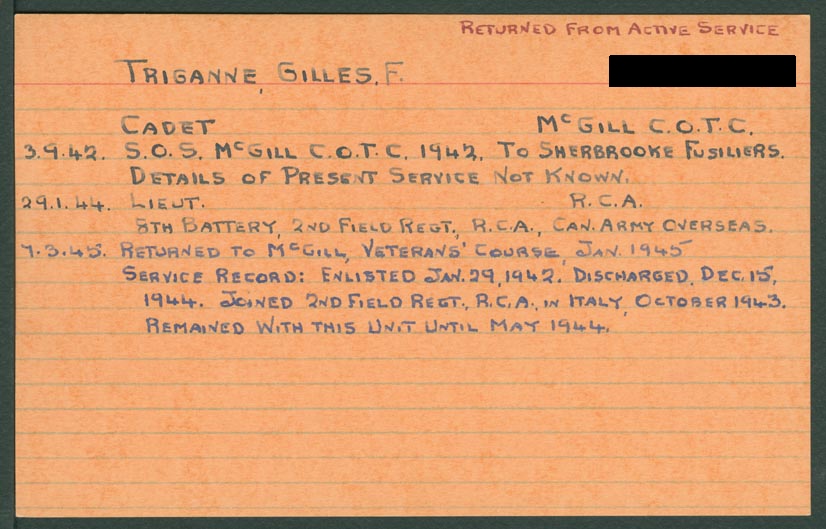 RETURNED FROM ACTIVE SERVICE
TRIGANNE, GILLES, F.
CADET McGILL C.O.T.C.
3.9.42. S.O.S. McGILL C.O.T.C. 1942. TO SHERBROOKE FUSILIERS.
DETAILS OF PRESENT SERVICE NOT KNOWN.
29.1.44. LIEUT. R.C.A.
8TH BATTERY, 2ND FIELD REGT., R.C.A., CAN. ARMY OVERSEAS.
7.3.45. RETURNED TO McGILL, VETERANS' COURSE, JAN. 1945
SERVICE RECORD: ENLISTED JAN. 29, 1942. DISCHARGED, DEC. 15,
1944. JOINED 2ND FIELD REGT., R.C.A., IN ITALY, OCTOBER 1943.
REMAINED WITH THIS UNIT UNTIL MAY 1944.